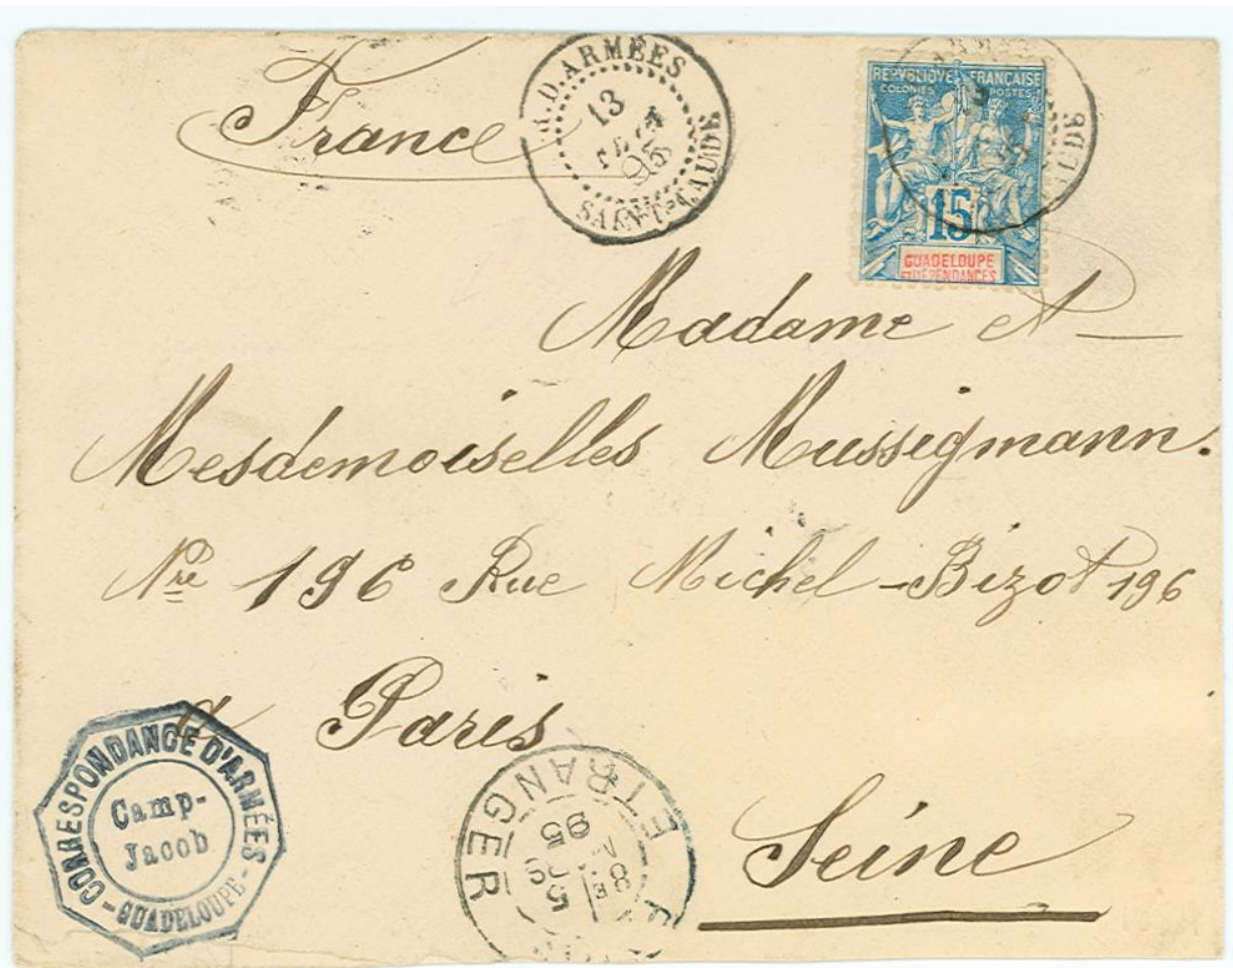 France
COR. D. ARMÉES
13
95
SAINT-CLAUDE
REPUBLIQUE FRANÇAISE
COLONIES POSTES
15
GUADELOUPE
ET DÉPENDANCES
Madame et
Mesdemoiselles Mussigmann.
Nre 196 Rue Michel-Bizot 196
a Paris
Seine
CORRESPONDANCE D'ARMÉES
Camp-
Jacob
- GUADELOUPE -
ETRANGER
95